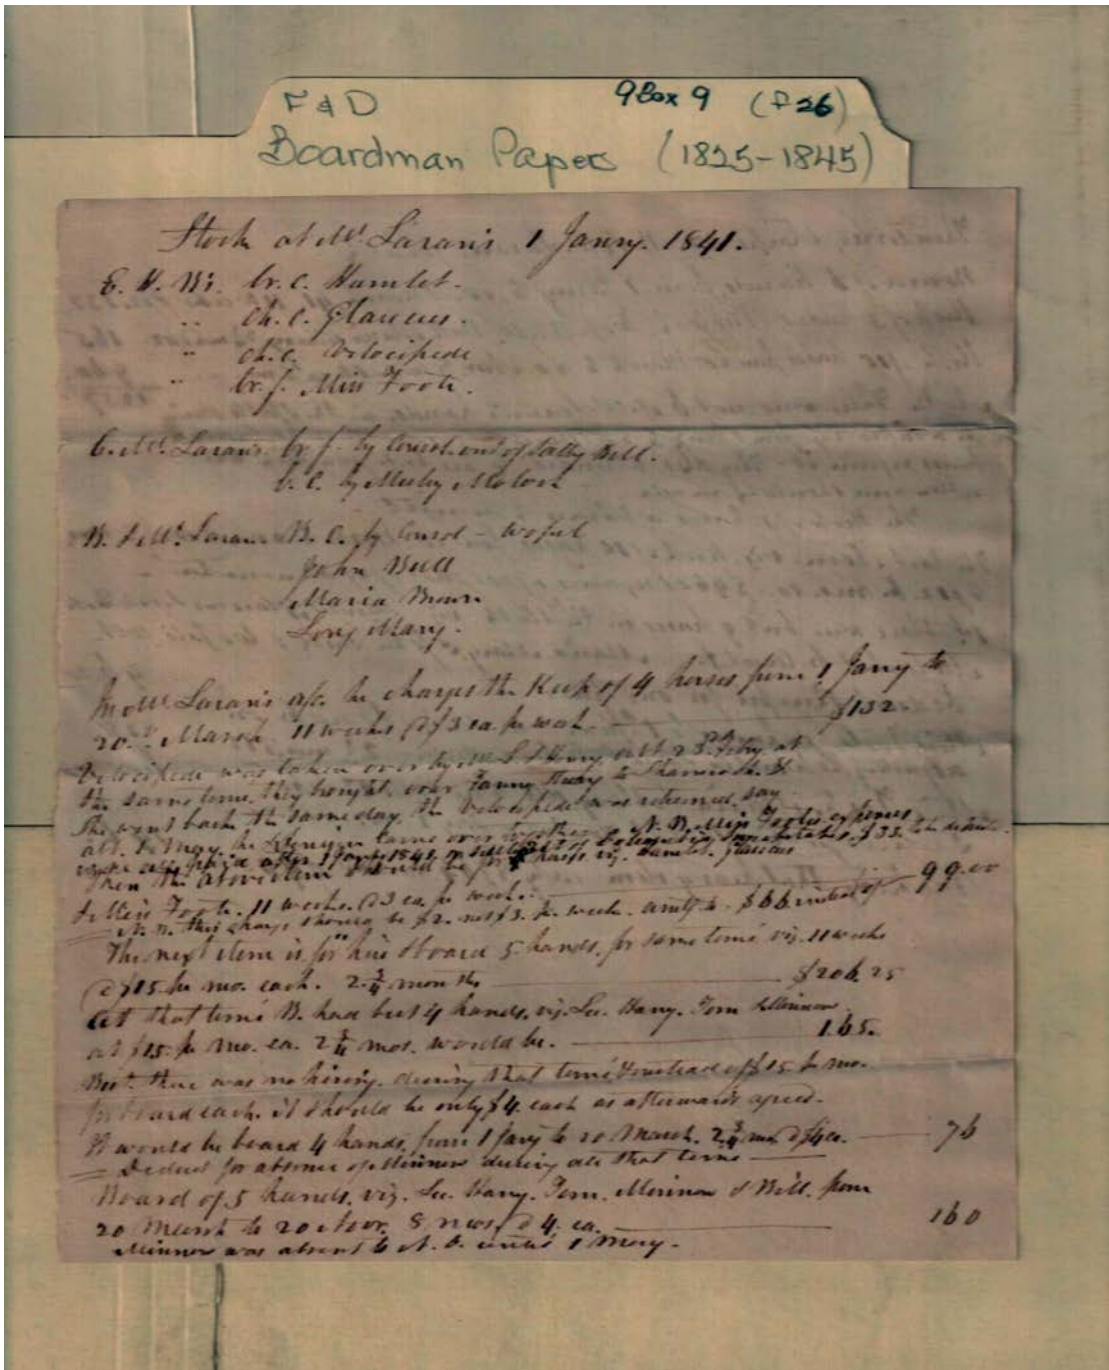 F & D 9 Box 9 (f 26)
Boardman Papers (1825-1845)
Stock at Mc Laran's 1 Janry. 1841.
E. H. B's. br. c. Hamlet.
" ch. c. Glaucus.
" ch. c. Velocipede
" br. f. Miss Foote.
C. Mc. Laran's br. f. by Consol. out of Sally Bell.
b. c. by Muley Moloch
B. & Mc. Laran B. c. by Consol - Woful
John Bull
Maria Brown
Long Mary.
In Mc Laran's a/c. he charges the Keep of 4 horses from 1 Jany to
20th March 11 weeks @ $3 ea. pr week $132.
Velocipede was taken over by Mc L & Henry abt 23rd Feby at
the same time they brought over Fanny
She went back the same day, the Velocipede was returned, say
abt. 1 May, he & came over together. N. B. Miss Foote's expenses
after 1 Jany 1841, $33. to be
Then the above item should be for 3 horses viz. Hamlet. Glaucus
& Miss Foote. 11 weeks @ 3 ea. pr week. 99.00
N. B. this charge should be $2. not $3. pr week. amtg to $66 instead of
The next item is for "hire & board 5 hands, for same time viz. 11 weeks
@ $15 pr mo. each. 2 3/4 months $206.25
At that time B. had but 4 hands, viz. Lee. Harry. Tom & Minnow
at $15. pr mo. ea. 2 3/4 mos. would be. 165.
But. there was no hiring during that time & instead of $15 pr mo.
for board each. it should be only $4. each as afterwards agreed.
It would be board 4 hands, from 1 Jany to 20 March. 2 3/4 mo @ $4 ea. 76
Deduct for absence of Minnow during all that time
Board of 5 hands. viz. Lee. Harry. Tom. Minnow & Bill. from
20 March to 20 Novr. 8 mos. @ 4. ea. 160
Minnow was absent to N. O. until 1 May.